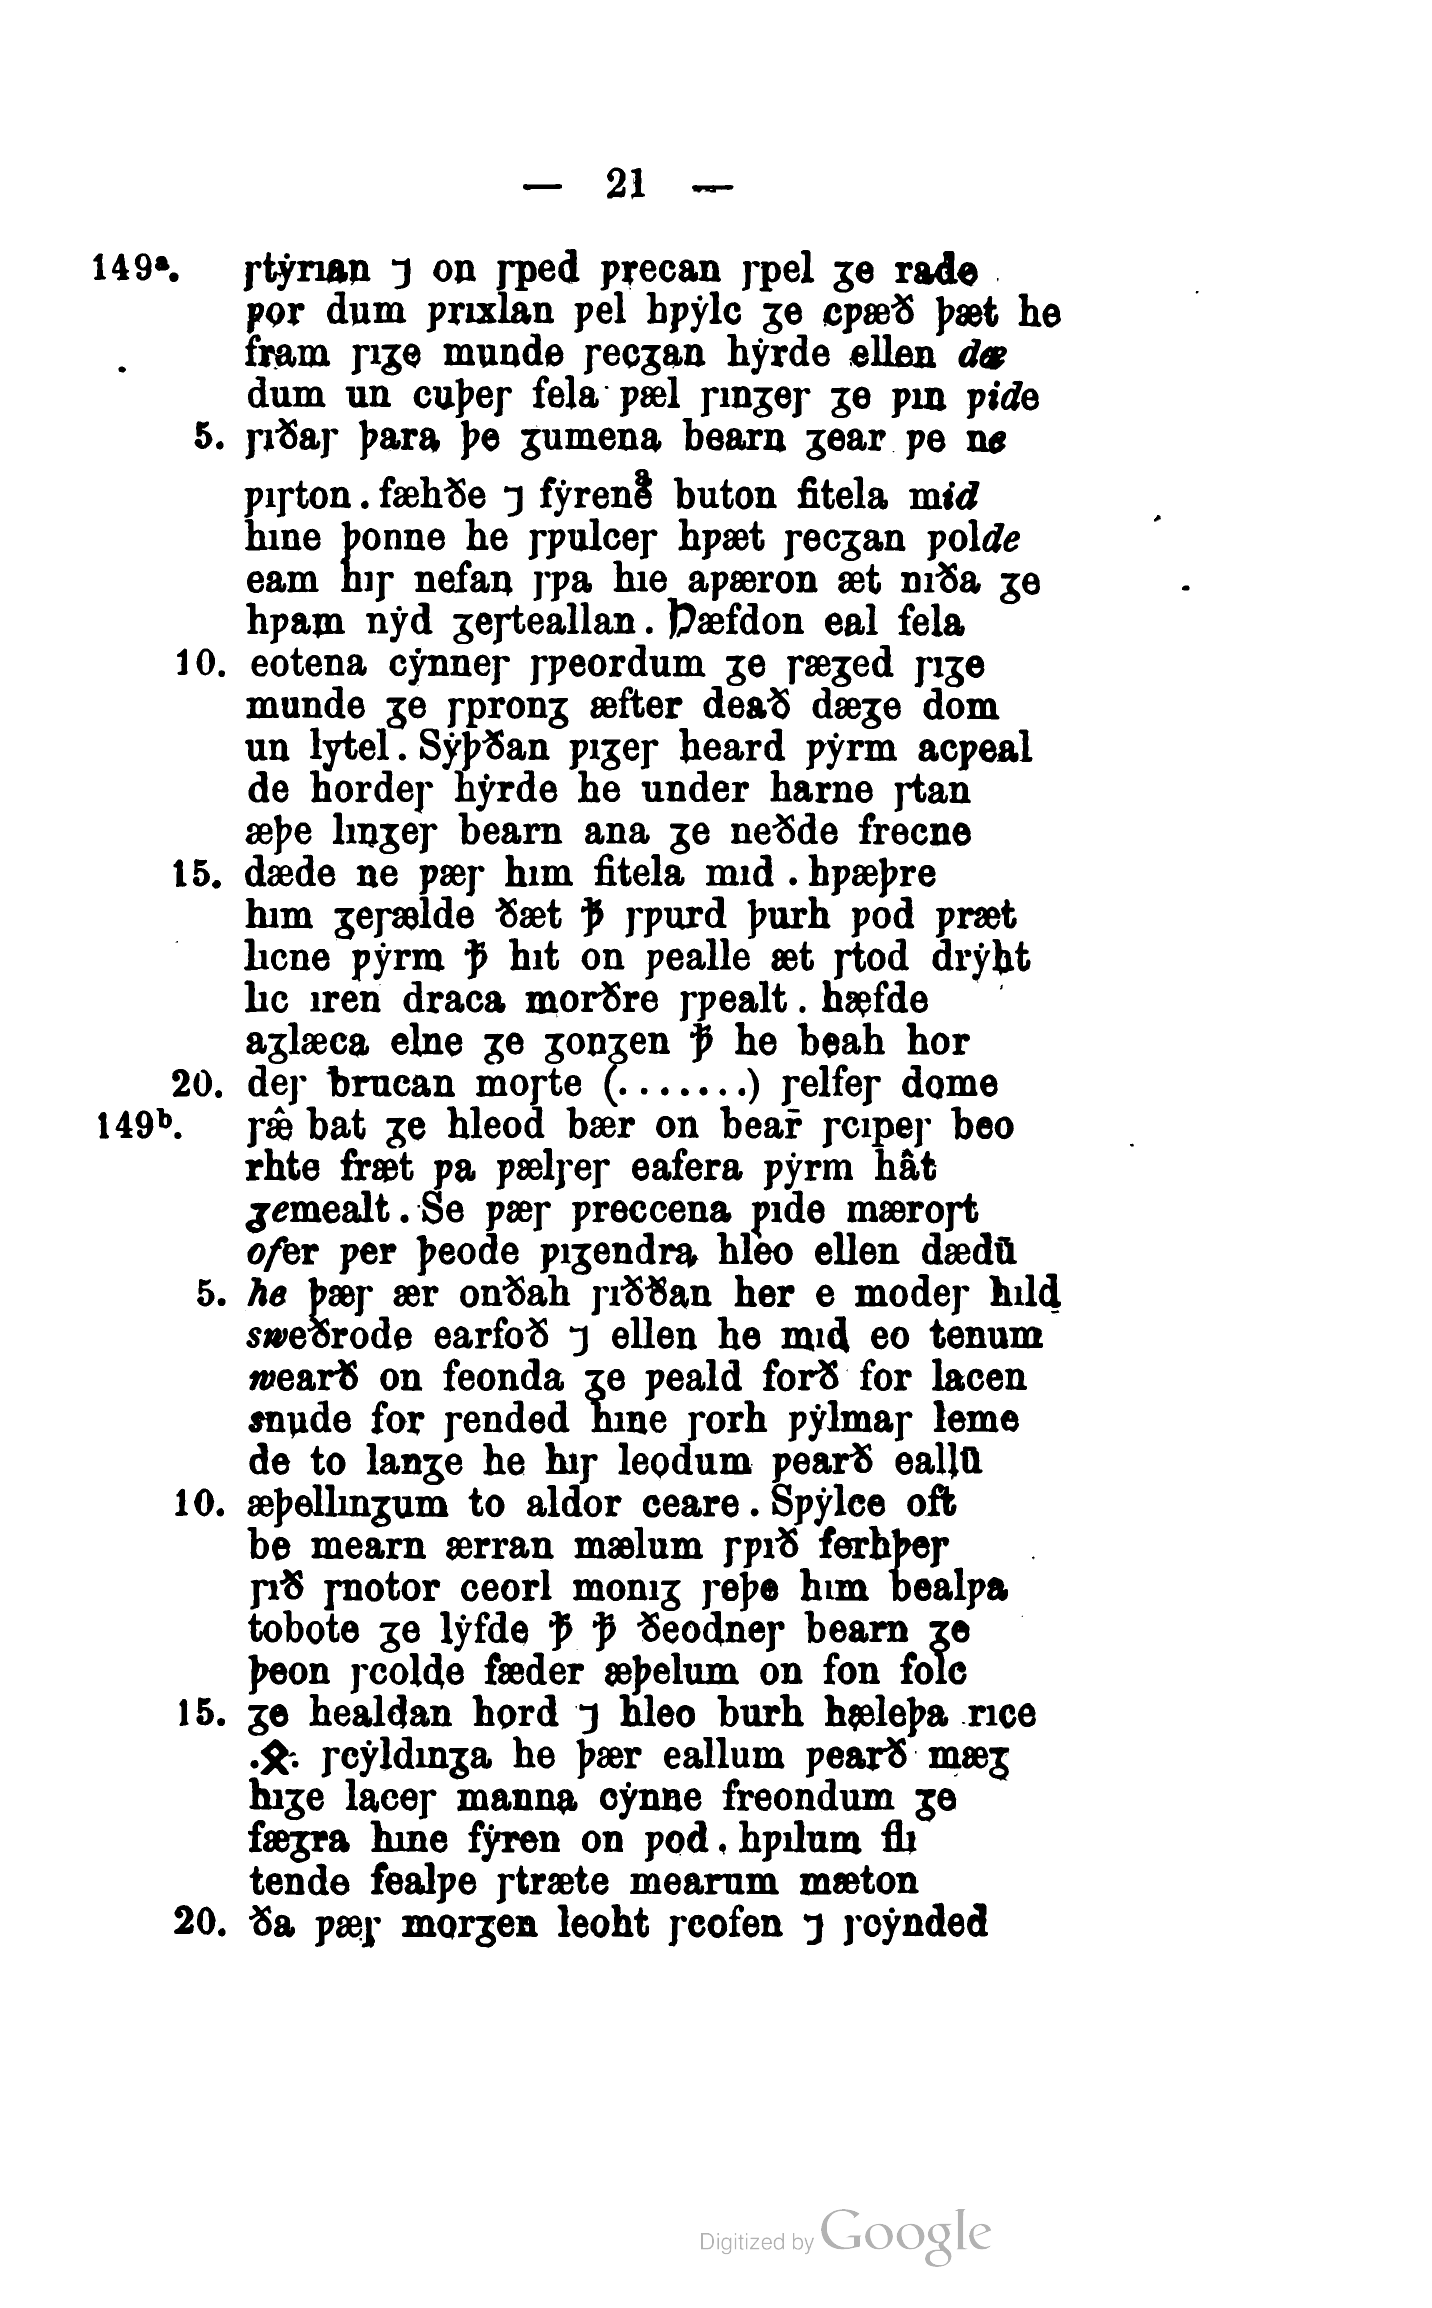 — 21 —
149ᵃ. ꞅtẏrıan ⁊ on ꞅped precan ꞅpel ʒe rade
por dum prıxlan pel hpẏlc ʒe cpæð þæt he
fram ꞅıʒe munde ꞅecʒan hẏrde ellen dæ
dum un cuþeꞅ fela pæl ꞅınʒeꞅ ʒe pın pide
5. ꞅıðaꞅ þara þe ʒumena bearn ʒear pe ne
pıꞅton . fæhðe ⁊ fẏrenẽ buton fitela mid
hıne þonne he ꞅpulceꞅ hpæt ꞅecʒan polde
eam hıꞅ nefan ꞅpa hıe apæron æt nıða ʒe
hpam nẏd ʒeꞅteallan . Hæfdon eal fela
10. eotena cẏnneꞅ ꞅpeordum ʒe ꞅæʒed ꞅıʒe
munde ʒe ꞅpronʒ æfter deað dæʒe dom
un lytel . Sẏþðan pıʒeꞅ heard pẏrm acpeal
de hordeꞅ hẏrde he under harne ꞅtan
æþe lınʒeꞅ bearn ana ʒe neðde frecne
15. dæde ne pæꞅ hım fitela mıd . hpæþre
hım ʒeꞅælde ðæt ꝥ ꞅpurd þurh pod præt
lıcne pẏrm ꝥ hıt on pealle æt ꞅtod drẏht
lıc ıren draca morðre ꞅpealt . hæfde
aʒlæca elne ʒe ʒonʒen ꝥ he beah hor
20. deꞅ brucan moꞅte (.......) ꞅelfeꞅ dome
149ᵇ. ꞅæ̂ bat ʒe hleod bær on bear̄ ꞅcıpeꞅ beo
rhte fræt pa pælꞅeꞅ eafera pẏrm hât
ʒemealt . Se pæꞅ preccena pıde mæroꞅt
ofer per þeode pıʒendra hleo ellen dædū
5. he þæꞅ ær onðah ꞅıððan her e modeꞅ hıld
sweðrode earfoð ⁊ ellen he mıd eo tenum
wearð on feonda ʒe peald forð for lacen
snude for ꞅended hıne ꞅorh pẏlmaꞅ leme
de to lanʒe he hıꞅ leodum pearð eallū
10. æþellınʒum to aldor ceare . Spẏlce oft
be mearn ærran mælum ꞅpıð ferhþeꞅ
ꞅıð ꞅnotor ceorl monıʒ ꞅeþe hım bealpa
tobote ʒe lẏfde ꝥ ꝥ ðeodneꞅ bearn ʒe
þeon ꞅcolde fæder æþelum on fon folc
15. ʒe healdan hord ⁊ hleo burh hæleþa rıce
.ᛟ. ꞅcẏldınʒa he þær eallum pearð mæʒ
hıʒe laceꞅ manna cẏnne freondum ʒe
fæʒra hıne fẏren on pod . hpılum flı
tende fealpe ꞅtræte mearum mæton
20. ða pæꞅ morʒen leoht ꞅcofen ⁊ ꞅcẏnded
Digitized by Google